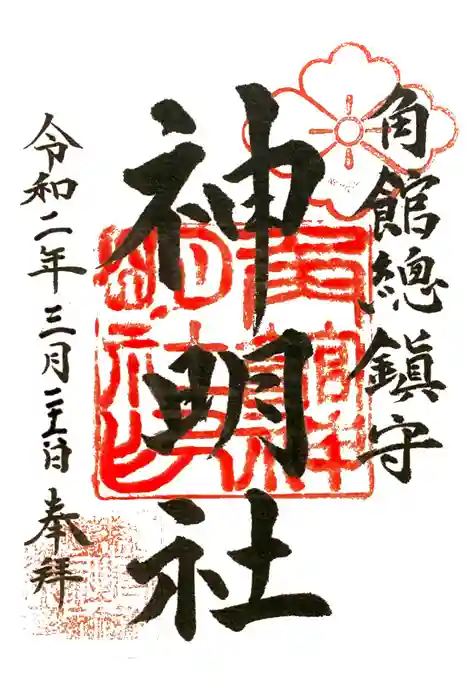 角館總鎮守
神明社
令和二年三月二十五日 奉拝